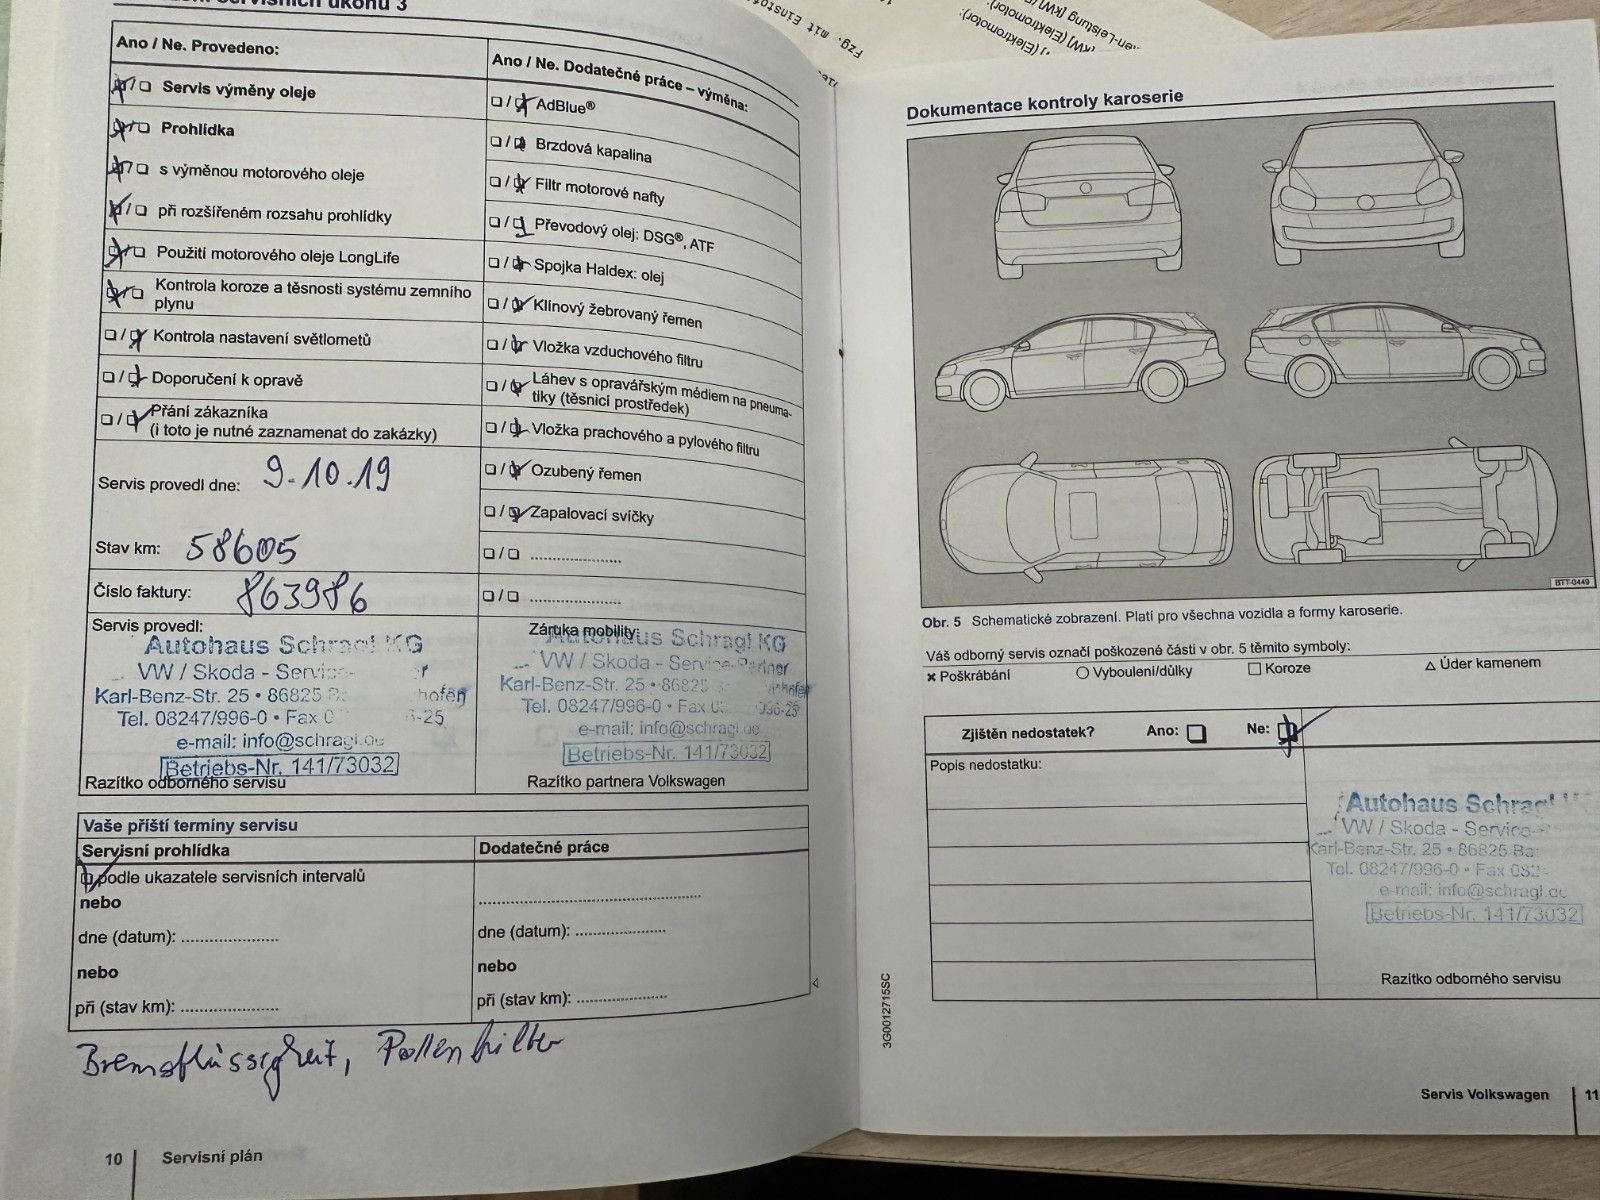 servisních úkonů 3
Ano / Ne. Provedeno:
Servis výměny oleje
Prohlídka
s výměnou motorového oleje
při rozšířeném rozsahu prohlídky
Použití motorového oleje LongLife
Kontrola koroze a těsnosti systému zemního
plynu
Kontrola nastavení světlometů
Doporučení k opravě
Přání zákazníka
(i toto je nutné zaznamenat do zakázky)
Servis provedl dne: 9.10.19
Stav km: 58605
Číslo faktury: 863986
Servis provedl:
Autohaus Schragl KG
VW / Skoda - Service-
Karl-Benz-Str. 25 • 86825
Tel. 08247/996-0 • Fax
e-mail: info@schragl.de
Betriebs-Nr. 141/73032
Razítko odborného servisu
Ano / Ne. Dodatečné práce – výměna:
AdBlue®
Brzdová kapalina
Filtr motorové nafty
Převodový olej: DSG®, ATF
Spojka Haldex: olej
Klínový žebrovaný řemen
Vložka vzduchového filtru
Láhev s opravářským médiem na pneuma-
tiky (těsnicí prostředek)
Vložka prachového a pylového filtru
Ozubený řemen
Zapalovací svíčky
Záruka mobility:
Autohaus Schragl KG
VW / Skoda - Service-Partner
Karl-Benz-Str. 25 • 86825
Tel. 08247/996-0 • Fax
e-mail: info@schragl.de
Betriebs-Nr. 141/73032
Razítko partnera Volkswagen
Vaše příští termíny servisu
Servisní prohlídka
podle ukazatele servisních intervalů
nebo
dne (datum): ....................
nebo
při (stav km): ....................
Dodatečné práce
dne (datum): ....................
nebo
při (stav km): ....................
Bremsflüssigkeit, Pollenfilter
10 Servisní plán
Fzg. mit Einstu
(Elektromotor):
kW] (Elektromotor):
en-Leistung [kW]
Dokumentace kontroly karoserie
BTT-0449
Obr. 5 Schematické zobrazení. Platí pro všechna vozidla a formy karoserie.
Váš odborný servis označí poškozené části v obr. 5 těmito symboly:
× Poškrábání ○ Vyboulení/důlky □ Koroze △ Úder kamenem
Zjištěn nedostatek? Ano: Ne:
Popis nedostatku:
Autohaus Schragl
VW / Skoda - Service-
Karl-Benz-Str. 25 • 86825
Tel. 08247/996-0 • Fax
e-mail: info@schragl.de
Betriebs-Nr. 141/73032
Razítko odborného servisu
3G0012715SC
Servis Volkswagen 11